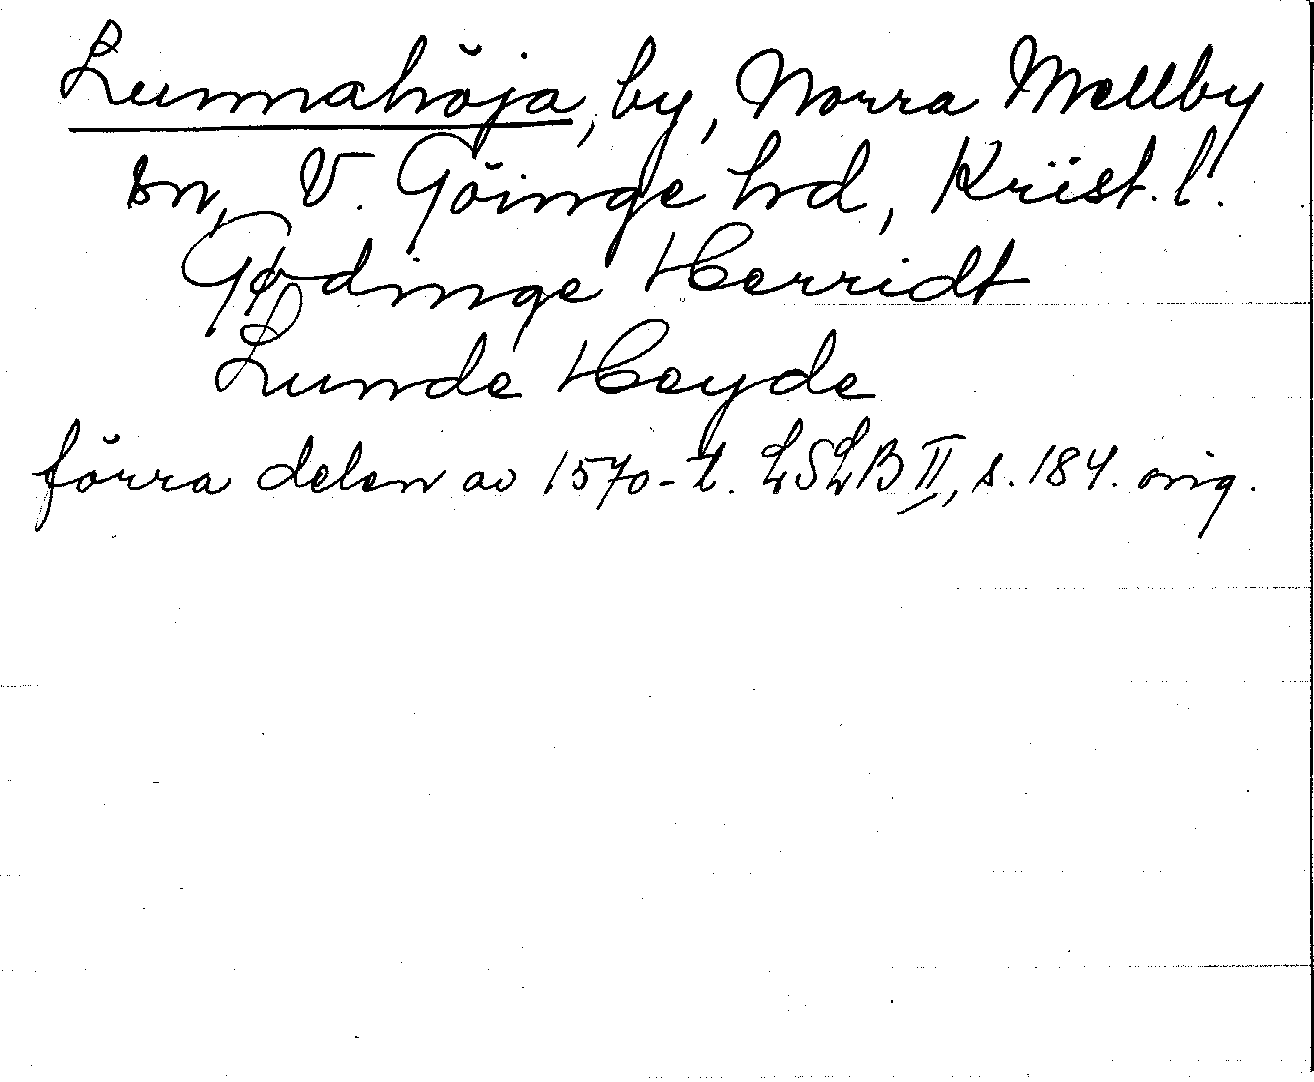 Lunnahöja, by, Norra Mellby
sn, V. Göinge hrd, Krist. l.
Gødinge Herridt
Lunde Heyde
förra delen av 1570-t. LSLB II, s. 184. orig.